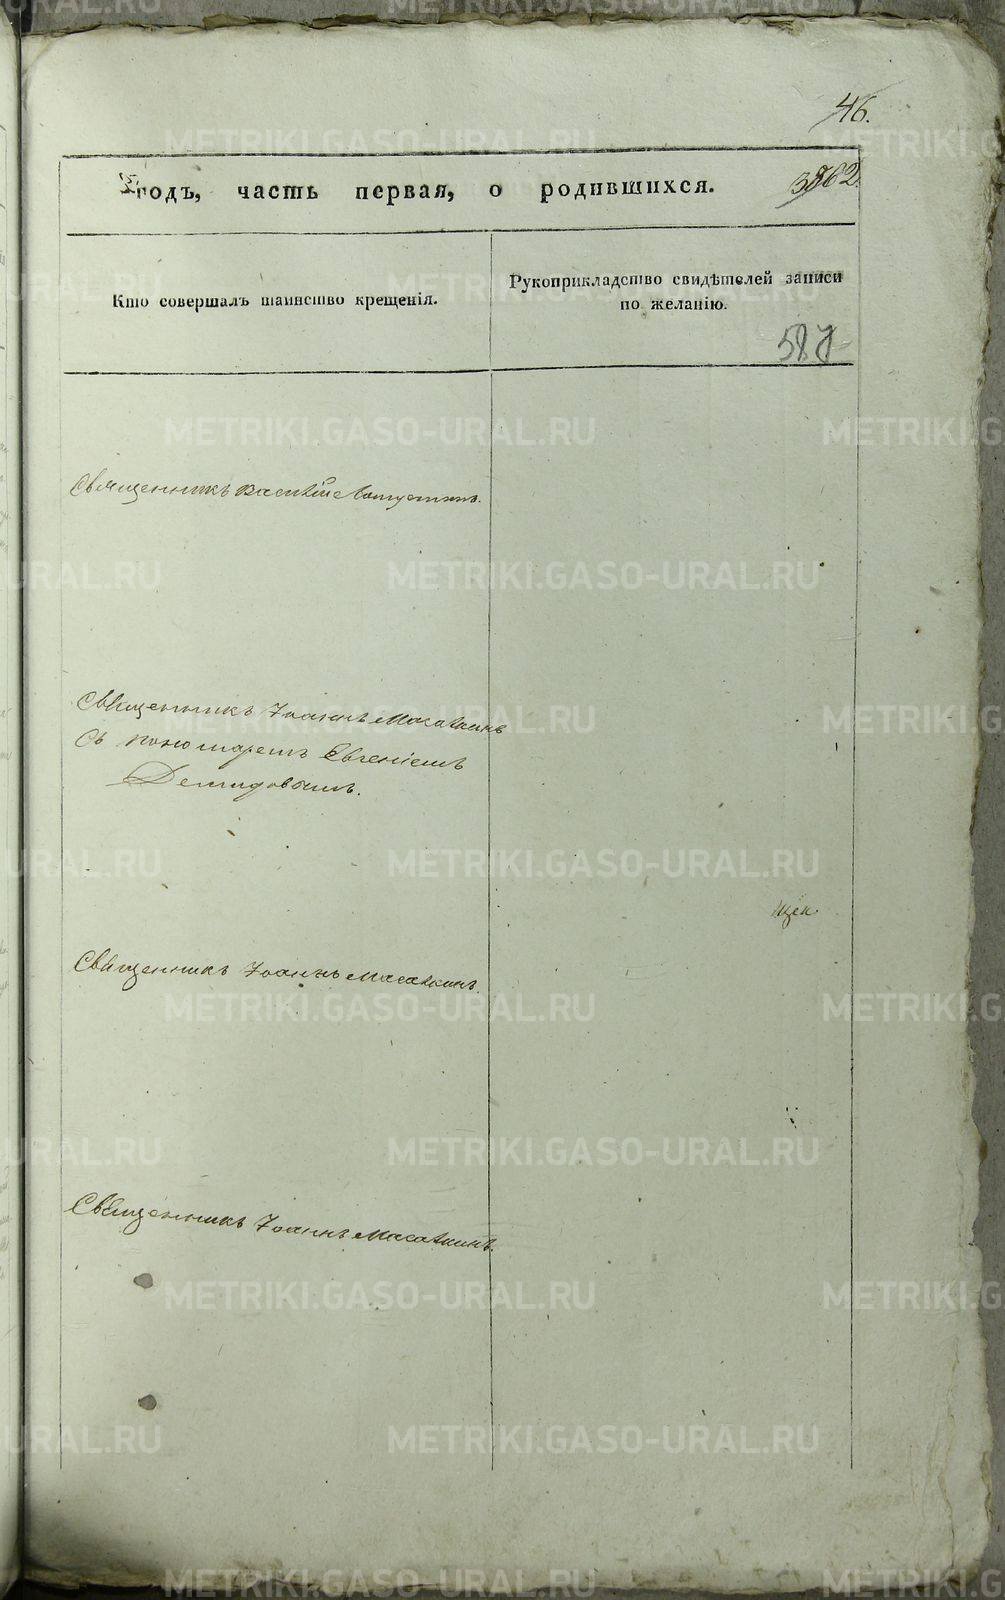 46.
годъ, часть первая, о родившихся.
Кто совершалъ таинство крещенія.
Рукоприкладство свидѣтелей записи
по желанію.
587
Священникъ Василій
Священникъ Іоаннъ Масалкинъ
съ пономаремъ Евгеніемъ
Демидовымъ.
Священникъ Іоаннъ Масалкинъ
Священникъ Іоаннъ Масалкинъ.
METRIKI.GASO-URAL.RU